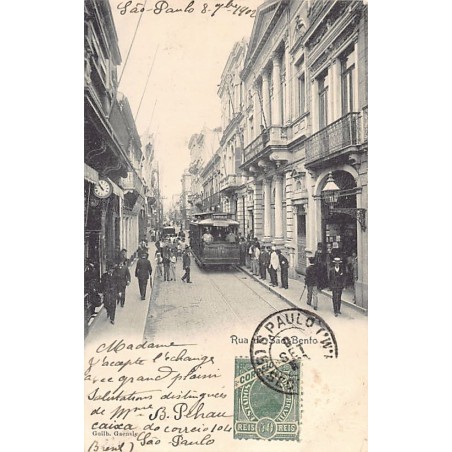 São-Paulo 8-7bre 1902
Rua de São Bento
S. PAULO
Madame
J'accepte l'échange
avec grand plaisir
Salutations distinguées
de Mme B. Pehrau
caixa do correio 104
São-Paulo
(Brésil)
Guilh. Gaensly
REIS REIS